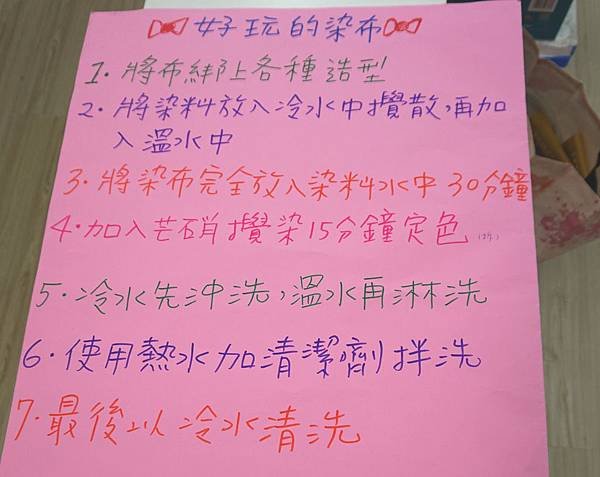 好玩的染布
1.將布綁上各種造型
2.將染料放入冷水中攪散,再加
入溫水中
3.將染布完全放入染料水中30分鐘
4.加入芒硝攪染15分鐘定色
5.冷水先沖洗,溫水再淋洗
6.使用熱水加清潔劑拌洗
7.最後以冷水清洗